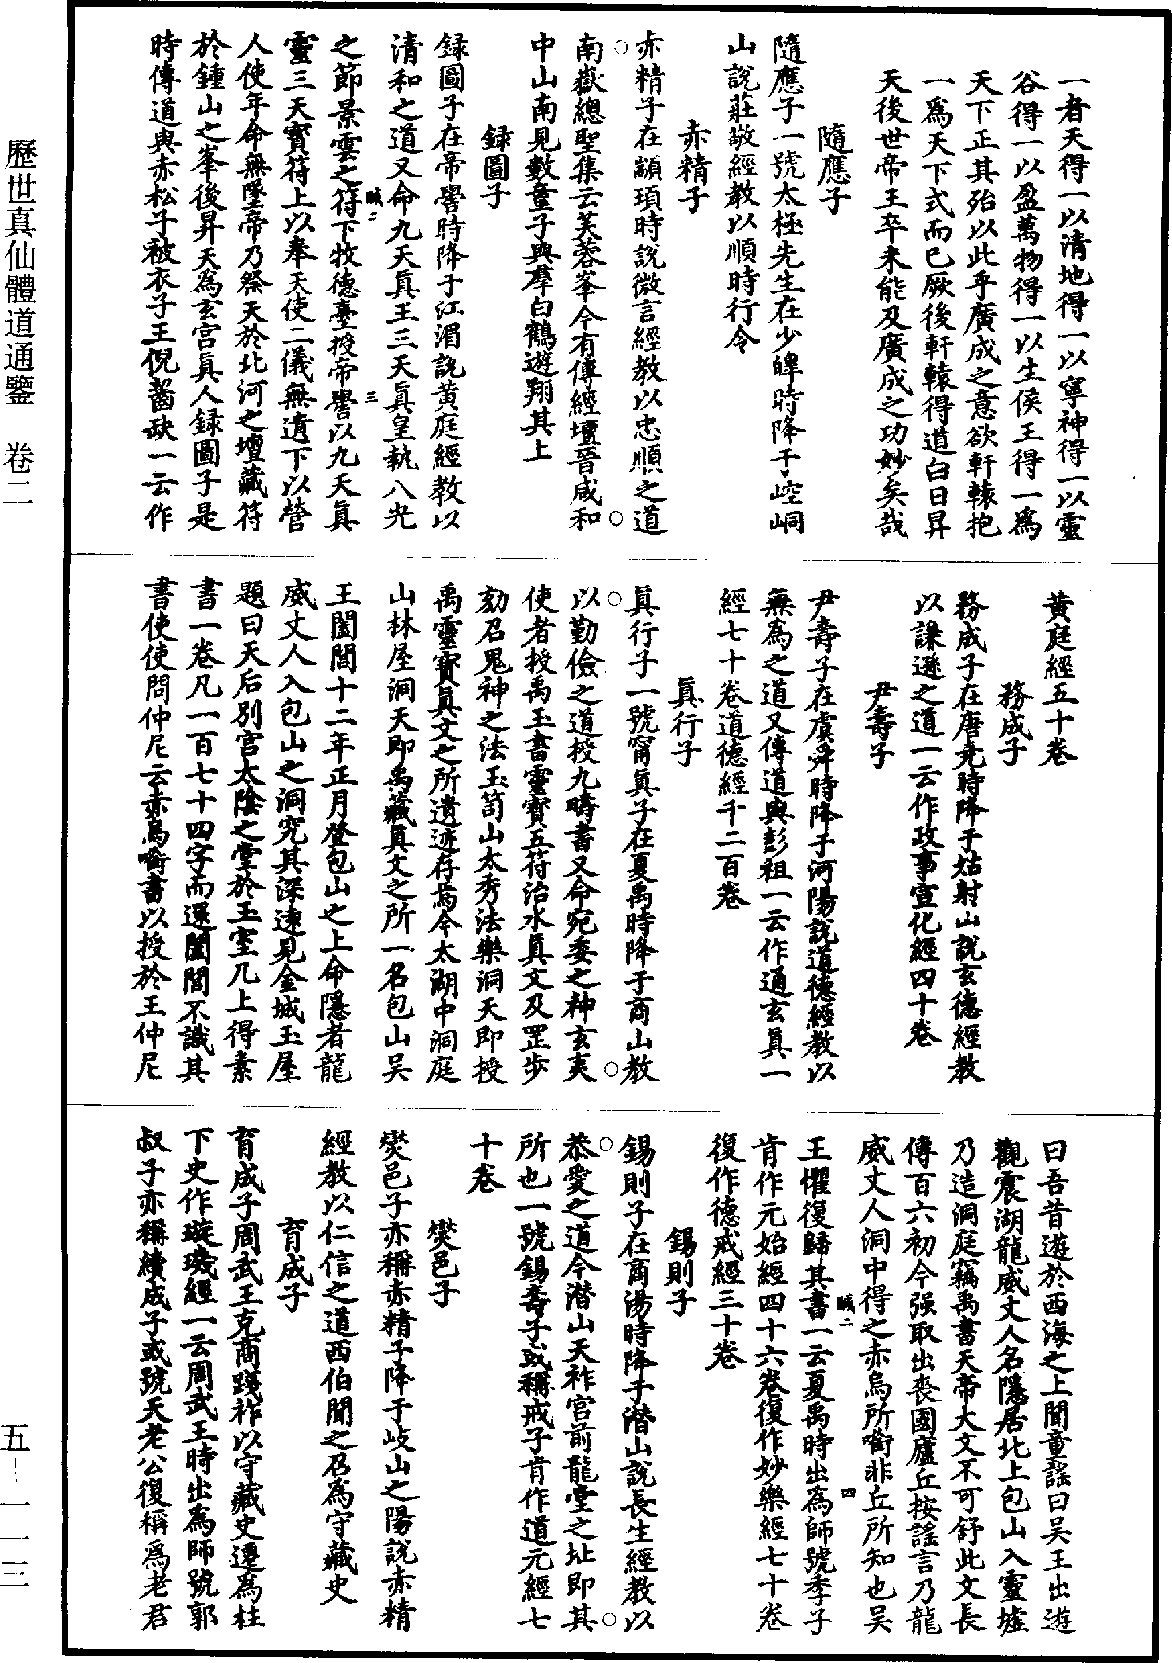 一者天得一以清地得一以寧神得一以靈
谷得一以盈萬物得一以生侯王得一爲
天下正其殆以此乎廣成之意欲軒轅抱
一爲天下式而已厥後軒轅得道白日昇
天後世帝王卒未能及廣成之功妙矣哉
隨應子
隨應子一號太極先生在少皞時降于崆峒
山說莊敬經教以順時行令
赤精子
赤精子在顓頊時說微言經教以忠順之道
南嶽總聖集云芙蓉峯今有傳經壇晉咸和
中山南見數童子與羣白鶴遊翔其上
録圖子
録圖子在帝嚳時降于江湄說黃庭經教以
清和之道又命九天真王三天真皇執八光
之節景雲之符下牧德臺授帝嚳以九天真
靈三天寶符上以奉天使二儀無遺下以營
人使年命無墜帝乃祭天於北河之壇藏符
於鍾山之峯後昇天爲玄宫真人録圖子是
時傳道與赤松子被衣子王倪齧缺一云作
黃庭經五十卷
務成子
務成子在唐堯時降于姑射山說玄德經教
以謙遜之道一云作政事宣化經四十卷
尹壽子
尹壽子在虞舜時降于河陽說道德經教以
無爲之道又傳道與彭祖一云作通玄真一
經七十卷道德經千二百卷
真行子
真行子一號甯真子在夏禹時降于商山教
以勤儉之道授九疇書又命宛委之神玄夷
使者授禹玉書靈寶五符治水真文及罡步
劾召鬼神之法玉笥山太秀法樂洞天即授
禹靈寶真文之所遺迹存焉今太湖中洞庭
山林屋洞天即禹藏真文之所一名包山吳
王闔閭十二年正月登包山之上命隱者龍
威丈人入包山之洞究其深遠見金城玉屋
題曰天后別宫太陰之堂於玉室几上得素
書一卷凡一百七十四字而還闔閭不識其
書使使問仲尼云赤烏㗸書以授於王仲尼
曰吾昔遊於西海之上聞童謡曰吳王出遊
觀震湖龍威丈人名隱居北上包山入靈墟
乃造洞庭竊禹書天帝大文不可舒此文長
傳百六初今强取出喪國廬丘按謡言乃龍
威丈人洞中得之赤烏所㗸非丘所知也吳
王懼復歸其書一云夏禹時出爲師號季子
胥作元始經四十六卷復作妙樂經七十卷
復作德戒經三十卷
錫則子
錫則子在商湯時降于潛山說長生經教以
恭愛之道今潛山天祚宫前龍堂之址即其
所也一號錫壽子或稱戒子肯作道元經七
十卷
燮邑子
燮邑子亦稱赤精子降于岐山之陽說赤精
經教以仁信之道西伯聞之召爲守藏史
育成子
育成子周武王克商踐祚以守藏史遷爲柱
下史作璇璣經一云周武王時出爲師號郭
叔子亦稱續成子或號天老公復稱爲老君
歷世真仙體道通鑒 卷二
五-一一三